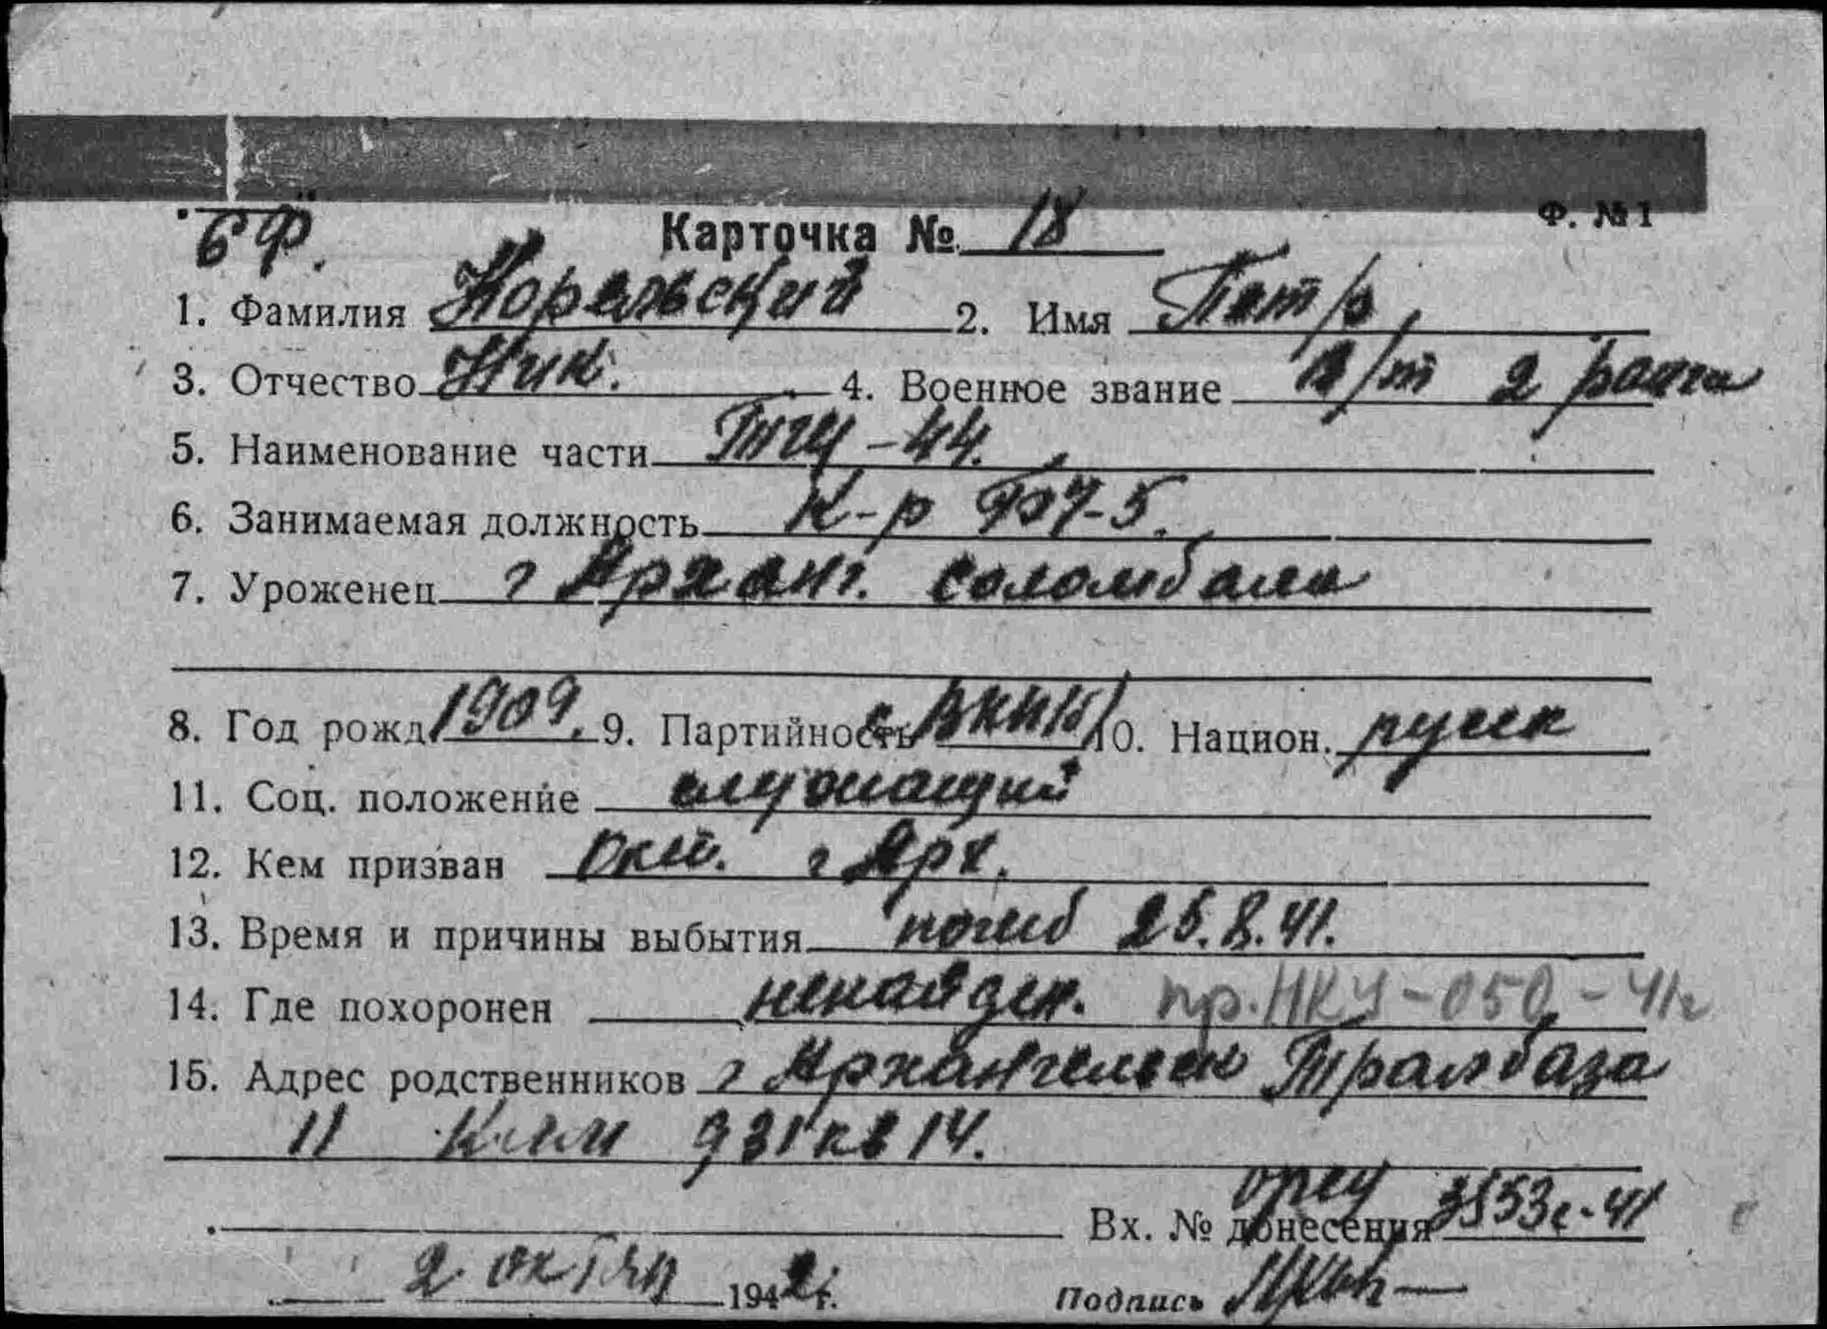 Ф. №1
БФ. Карточка № 18
1. Фамилия Норальский 2. Имя Петр
3. Отчество Ник. 4. Военное звание в/т 2 ранга
5. Наименование части ТТЩ-44.
6. Занимаемая должность К-р БЧ-5.
7. Уроженец г Арханг. Соломбала
8. Год рожд 1909. 9. Партийность ВКПб 10. Национ. русск
11. Соц. положение служащий
12. Кем призван г Арх.
13. Время и причины выбытия погиб 25.8.41.
14. Где похоронен ненайден. пр. НКУ-050-41г
15. Адрес родственников г Архангельск Тралбаза
11 д 31 кв 14.
Вх. № донесения 3553с-41
2 октяб 1942г.
Подпись